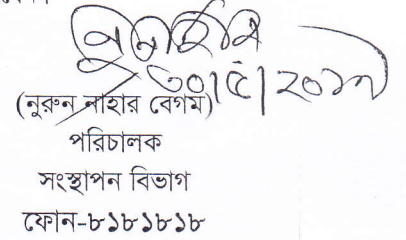 ৩০|৫|২০১৭
(নুরুন নাহার বেগম)
পরিচালক
সংস্থাপন বিভাগ
ফোন-৮১৮১৮১৮